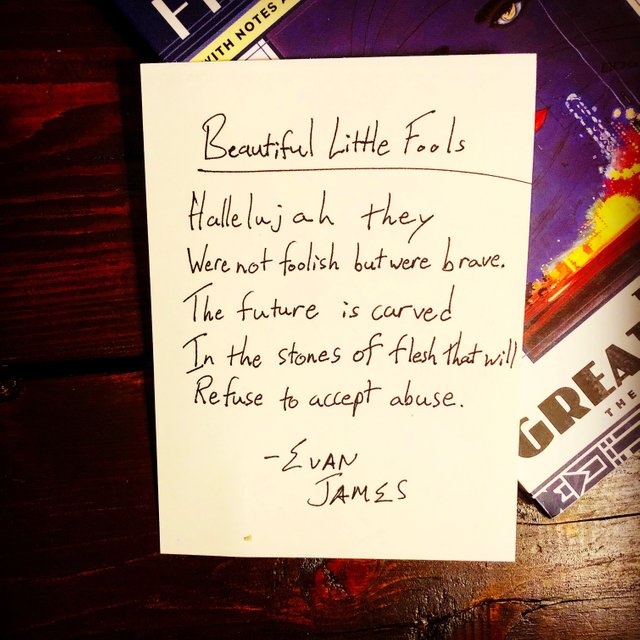 F
WITH NOTES A
Beautiful Little Fools
Hallelujah they
Were not foolish but were brave.
The future is carved
In the stones of flesh that will
Refuse to accept abuse.
-EVAN
JAMES
GREA
THE